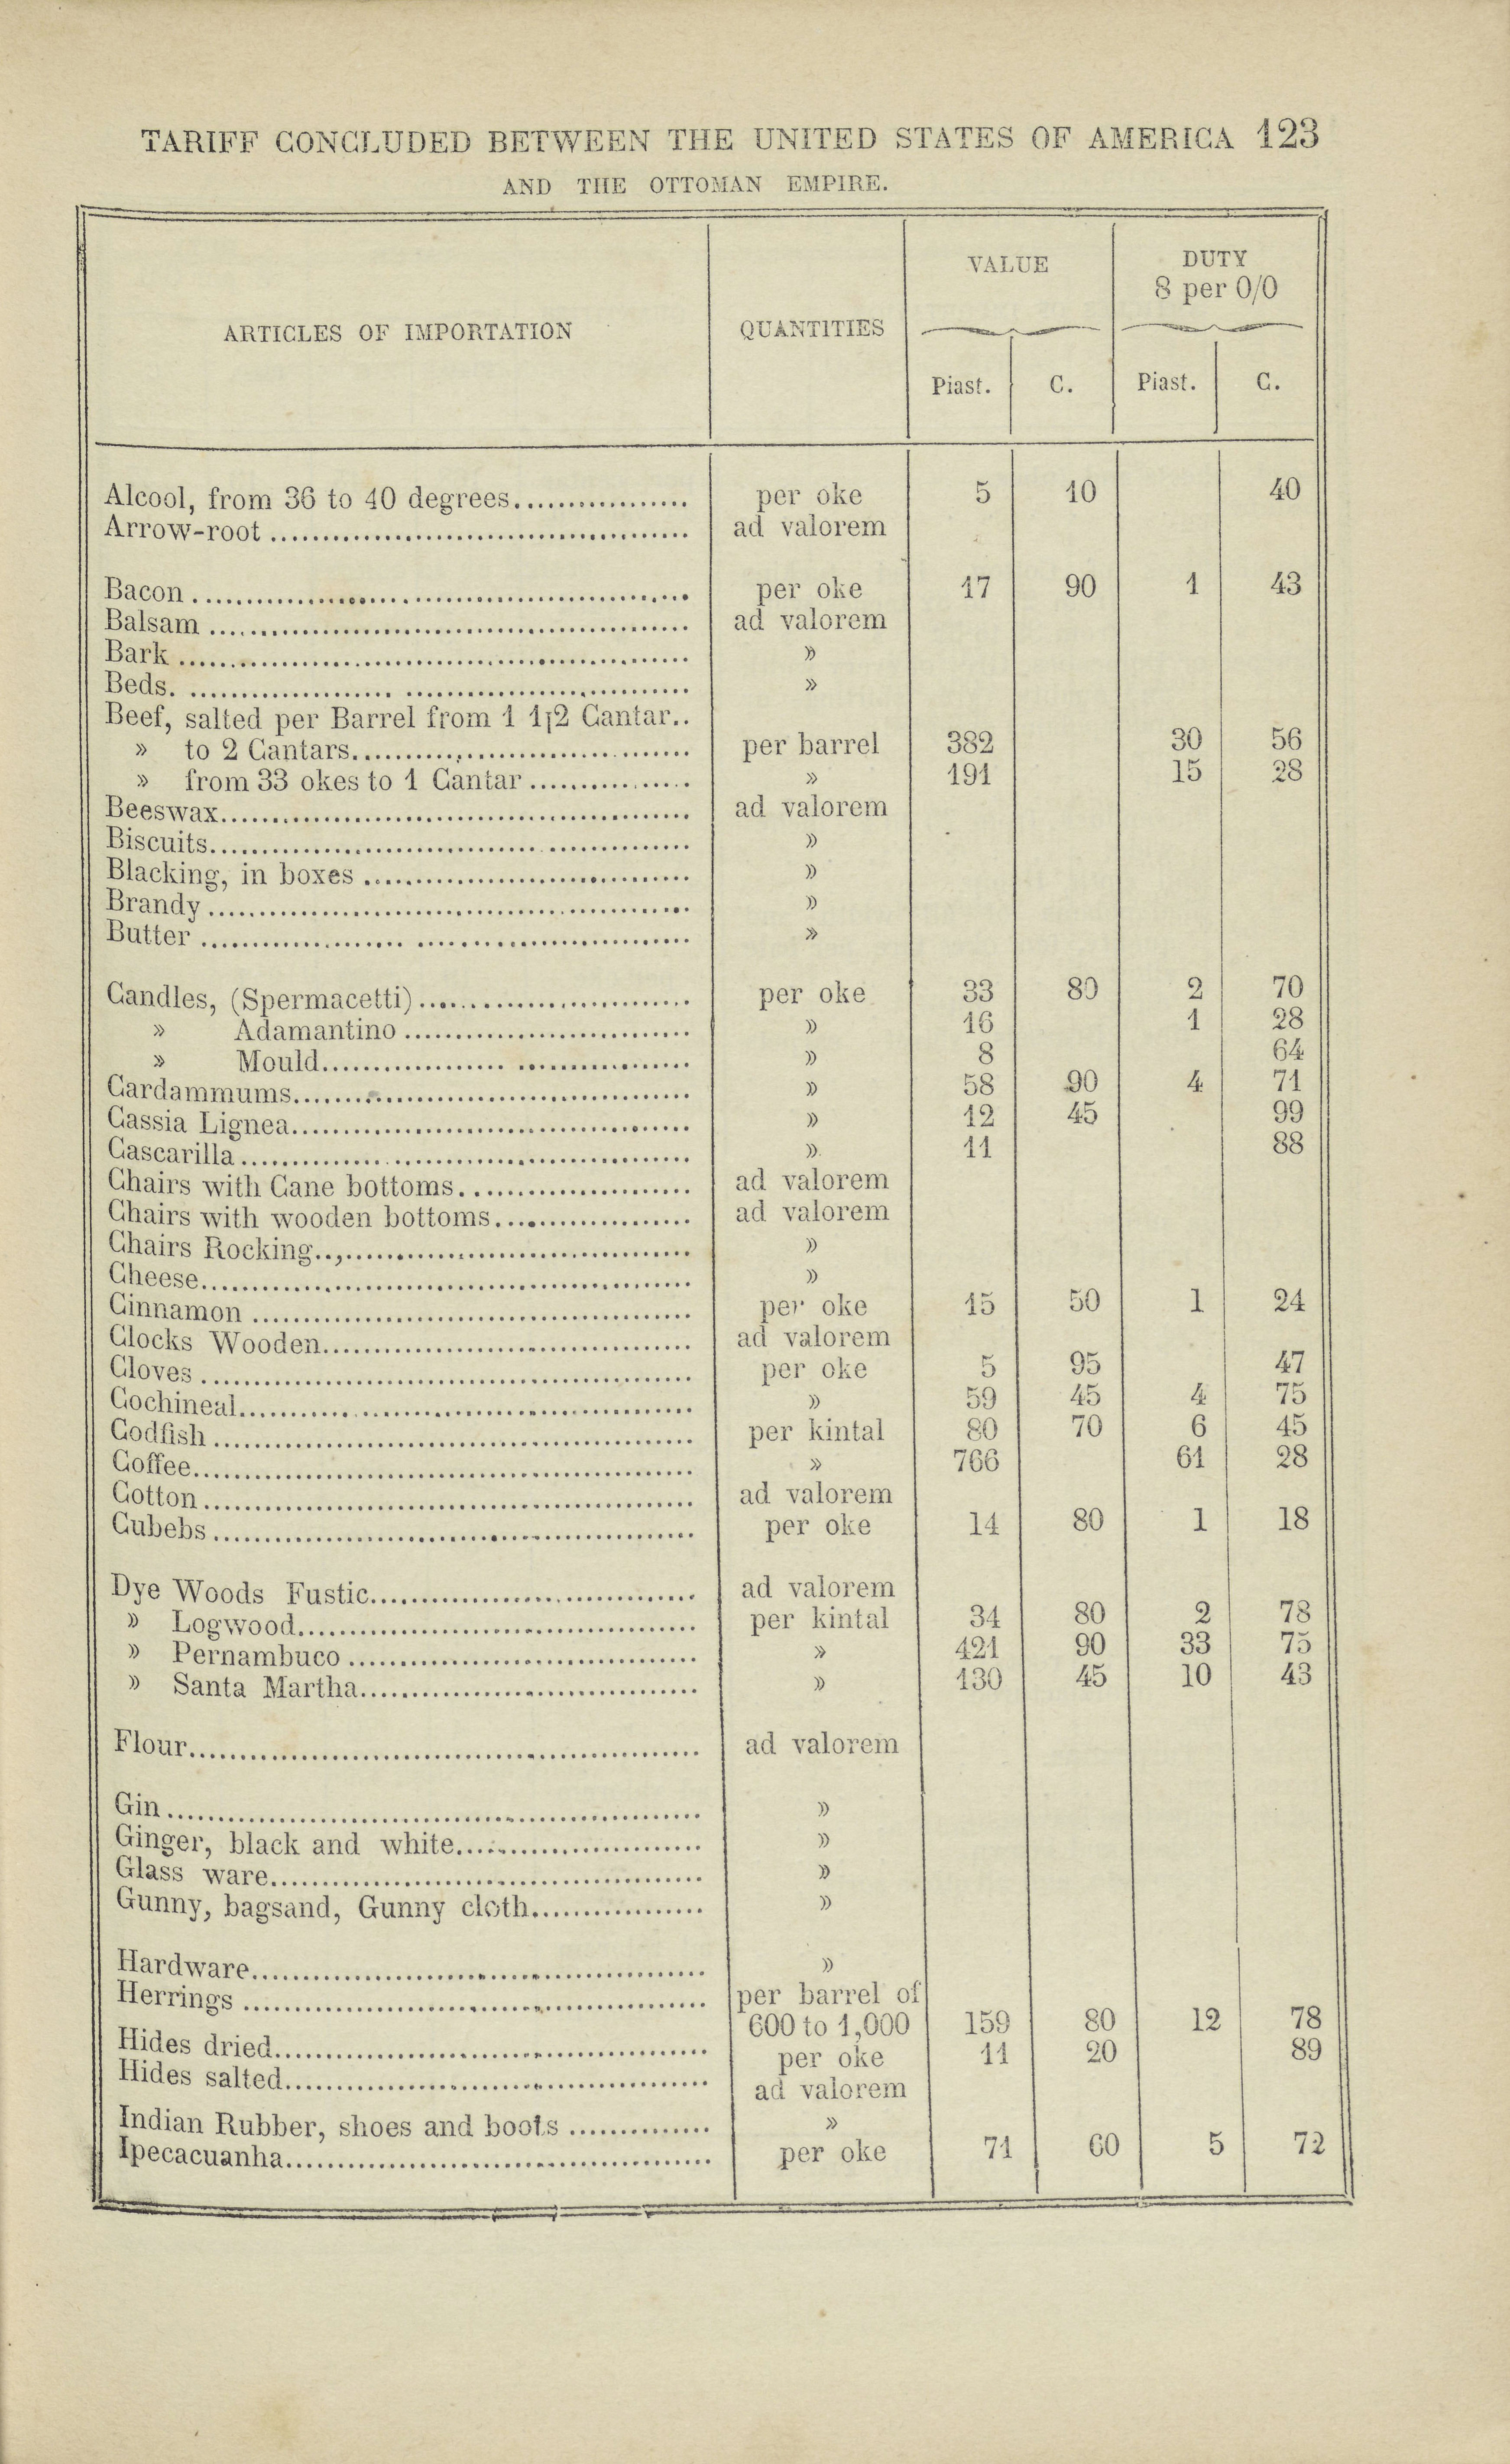 TARIFF CONCLUDED BETWEEN THE UNITED STATES OF AMERICA 123
AND THE OTTOMAN EMPIRE.
ARTICLES OF IMPORTATION QUANTITIES VALUE DUTY
8 per 0/0
Piast. C. Piast. C.
Alcool, from 36 to 40 degrees................ per oke 5 10 40
Arrow-root ................ ad valorem
Bacon ................ per oke 17 90 1 43
Balsam ................ ad valorem
Bark ................ »
Beds. ................ »
Beef, salted per Barrel from 1 1/2 Cantar..
» to 2 Cantars................ per barrel 382 30 56
» from 33 okes to 1 Cantar ................ » 191 15 28
Beeswax................ ad valorem
Biscuits................ »
Blacking, in boxes ................ »
Brandy ................ »
Butter ................ »
Candles, (Spermacetti)................ per oke 33 80 2 70
» Adamantino ................ » 16 1 28
» Mould................ » 8 64
Cardammums................ » 58 90 4 71
Cassia Lignea................ » 12 45 99
Cascarilla................ » 11 88
Chairs with Cane bottoms................ ad valorem
Chairs with wooden bottoms................ ad valorem
Chairs Rocking................ »
Cheese................ »
Cinnamon ................ per oke 15 50 1 24
Clocks Wooden................ ad valorem
Cloves ................ per oke 5 95 47
Cochineal................ » 59 45 4 75
Codfish ................ per kintal 80 70 6 45
Coffee................ » 766 61 28
Cotton................ ad valorem
Cubebs................ per oke 14 80 1 18
Dye Woods Fustic................ ad valorem
» Logwood................ per kintal 34 80 2 78
» Pernambuco ................ » 421 90 33 75
» Santa Martha................ » 130 45 10 43
Flour................ ad valorem
Gin ................ »
Ginger, black and white................ »
Glass ware................ »
Gunny, bagsand, Gunny cloth................ »
Hardware................ »
Herrings ................ per barrel of
600 to 1,000 159 80 12 78
Hides dried................ per oke 11 20 89
Hides salted................ ad valorem
Indian Rubber, shoes and boots ................ »
Ipecacuanha................ per oke 71 60 5 72